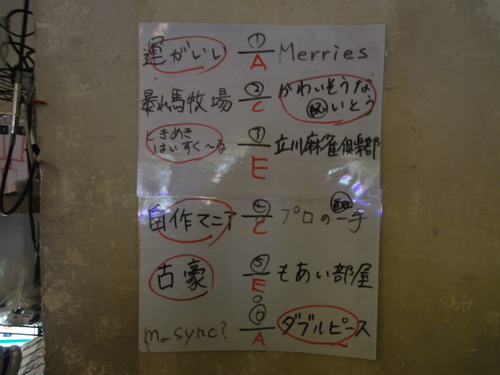 運がいい ① A Merries
暴れ馬牧場 ② C かわいそうな
いとう
ときめき
はいすく〜る ③ E 立川麻雀倶楽部
自作マニア ④ C プロの一手
古豪 ⑤ E もあい部屋
m_sync? ⑥ A ダブルピース